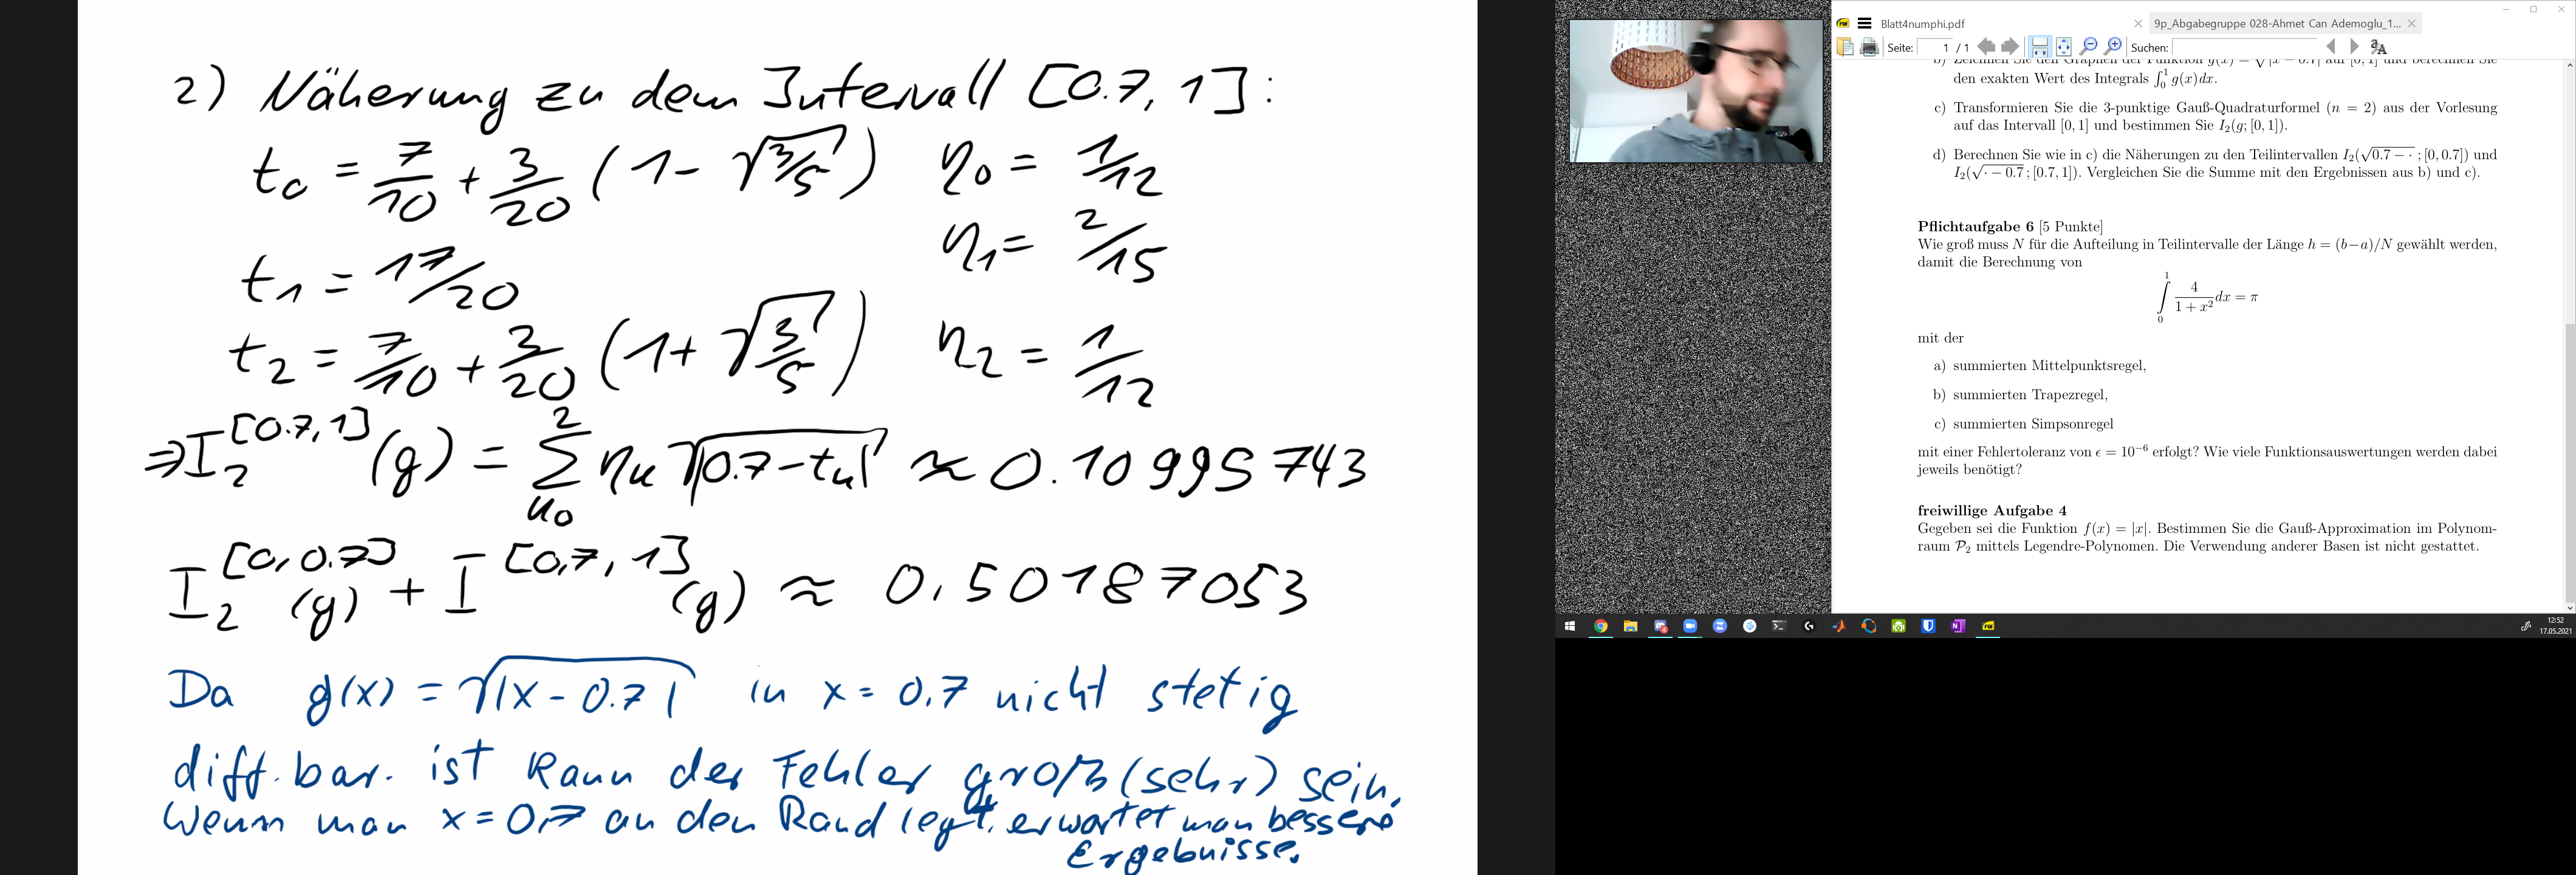 2) Näherung zu dem Intervall [0.7, 1]:
t₀ = 7/10 + 3/20 (1 - √(3/5)) η₀ = 1/12
t₁ = 17/20 η₁ = 2/15
t₂ = 7/10 + 3/20 (1 + √(3/5)) η₂ = 1/12
⇒ I₂^[0.7, 1] (g) = Σ ηₖ √|0.7 - tₖ| ≈ 0.10995743
I₂^[0, 0.7] (g) + I^[0,7, 1] (g) ≈ 0,50187053
Da g(x) = √|x - 0.7| in x = 0,7 nicht stetig
diff.bar. ist kann der Fehler groß (sehr) sein.
Wenn man x = 0,7 an den Rand legt, erwartet man bessere
Ergebnisse.
Blatt4numphi.pdf
9p_Abgabegruppe 028-Ahmet Can Ademoglu_1...
Seite: 1 / 1 Suchen:
b) Zeichnen Sie den Graphen der Funktion g(x) = √|x − 0.7| auf [0, 1] und berechnen Sie
den exakten Wert des Integrals ∫₀¹ g(x)dx.
c) Transformieren Sie die 3-punktige Gauß-Quadraturformel (n = 2) aus der Vorlesung
auf das Intervall [0, 1] und bestimmen Sie I₂(g; [0, 1]).
d) Berechnen Sie wie in c) die Näherungen zu den Teilintervallen I₂(√(0.7 − ·) ; [0, 0.7]) und
I₂(√(· − 0.7) ; [0.7, 1]). Vergleichen Sie die Summe mit den Ergebnissen aus b) und c).
Pflichtaufgabe 6 [5 Punkte]
Wie groß muss N für die Aufteilung in Teilintervalle der Länge h = (b−a)/N gewählt werden,
damit die Berechnung von
∫₀¹ 4/(1 + x²) dx = π
mit der
a) summierten Mittelpunktsregel,
b) summierten Trapezregel,
c) summierten Simpsonregel
mit einer Fehlertoleranz von ϵ = 10⁻⁶ erfolgt? Wie viele Funktionsauswertungen werden dabei
jeweils benötigt?
freiwillige Aufgabe 4
Gegeben sei die Funktion f(x) = |x|. Bestimmen Sie die Gauß-Approximation im Polynom-
raum 𝒫₂ mittels Legendre-Polynomen. Die Verwendung anderer Basen ist nicht gestattet.
12:52
17.05.2021